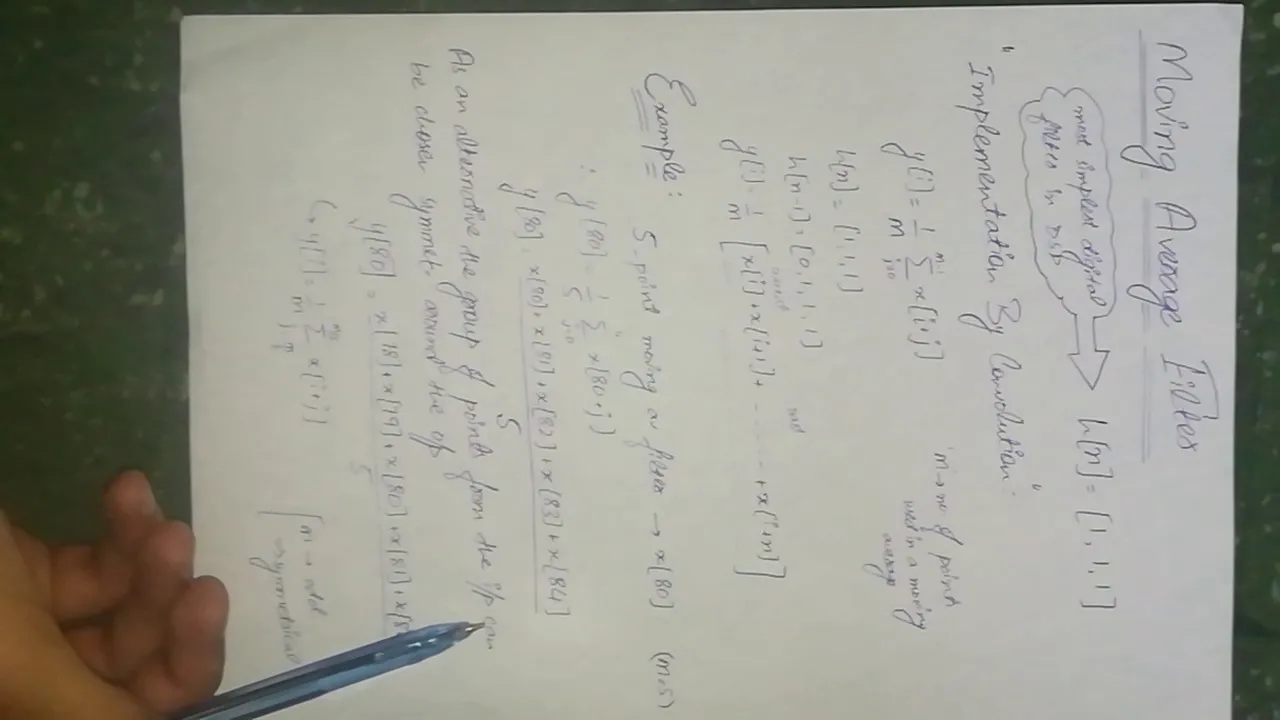 Moving Average Filter
most simplest digital
filter in DSP
h[n] = [1, 1, 1]
"Implementation By Convolution"
y[i] = 1/m Σ x[i+j]
m-1
j=0
m → no of point
used in a moving
average
h[n] = [1, 1, 1]
h[n-1] = [0, 1, 1, 1]
y[i] = 1/m [x[i] + x[i+1] + ------ + x[i+m]]
Example: 5-point moving av filter → x[80] (m=5)
∴ y[80] = 1/5 Σ x[80+j]
j=0
y[80] = x[80] + x[81] + x[82] + x[83] + x[84]
5
As an alternative the group of point from the i/p can
be chosen symmet. around the o/p
y[80] = x[78] + x[79] + x[80] + x[81] + x[8
5
↳ y[i] = 1/m Σ x[i+j]
[m → odd